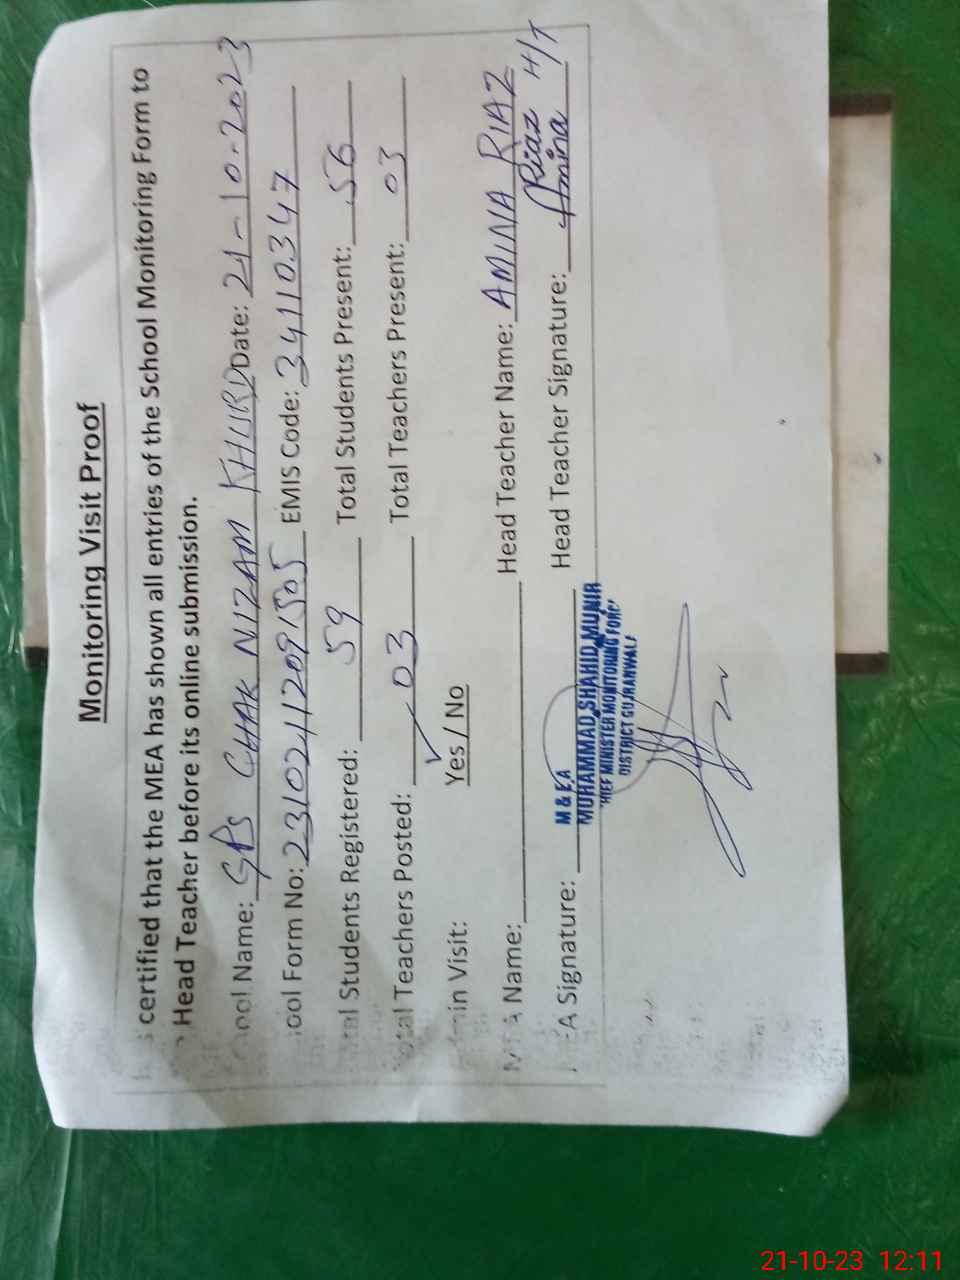 Monitoring Visit Proof
certified that the MEA has shown all entries of the School Monitoring Form to
Head Teacher before its online submission.
ool Name: GPS CHAK NIZAM KHURD Date: 21-10-2023
ool Form No: 23102112091505 EMIS Code: 34110347
tal Students Registered: 59 Total Students Present: 56
otal Teachers Posted: 03 Total Teachers Present: 03
in Visit: Yes / No
MEA Name: Head Teacher Name: AMINA RIAZ
EA Signature: Head Teacher Signature: Amina Riaz H/T
M & E A
MUHAMMAD SHAHID MUNIR
HIEF MINISTER MONITORING FORC
DISTRICT GUJRANWALA
21-10-23 12:11